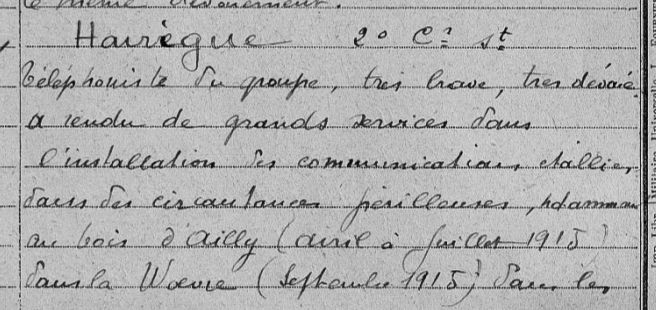 le même dévouement.
Hairègue 2º Cª st
téléphoniste du groupe, très brave, très dévoué,
a rendu de grands services dans
l'installation des communications établies,
dans des circonstances périlleuses, notamment
au bois d'Ailly (avril à Juillet 1915)
dans la Woevre (Septembre 1915) dans les